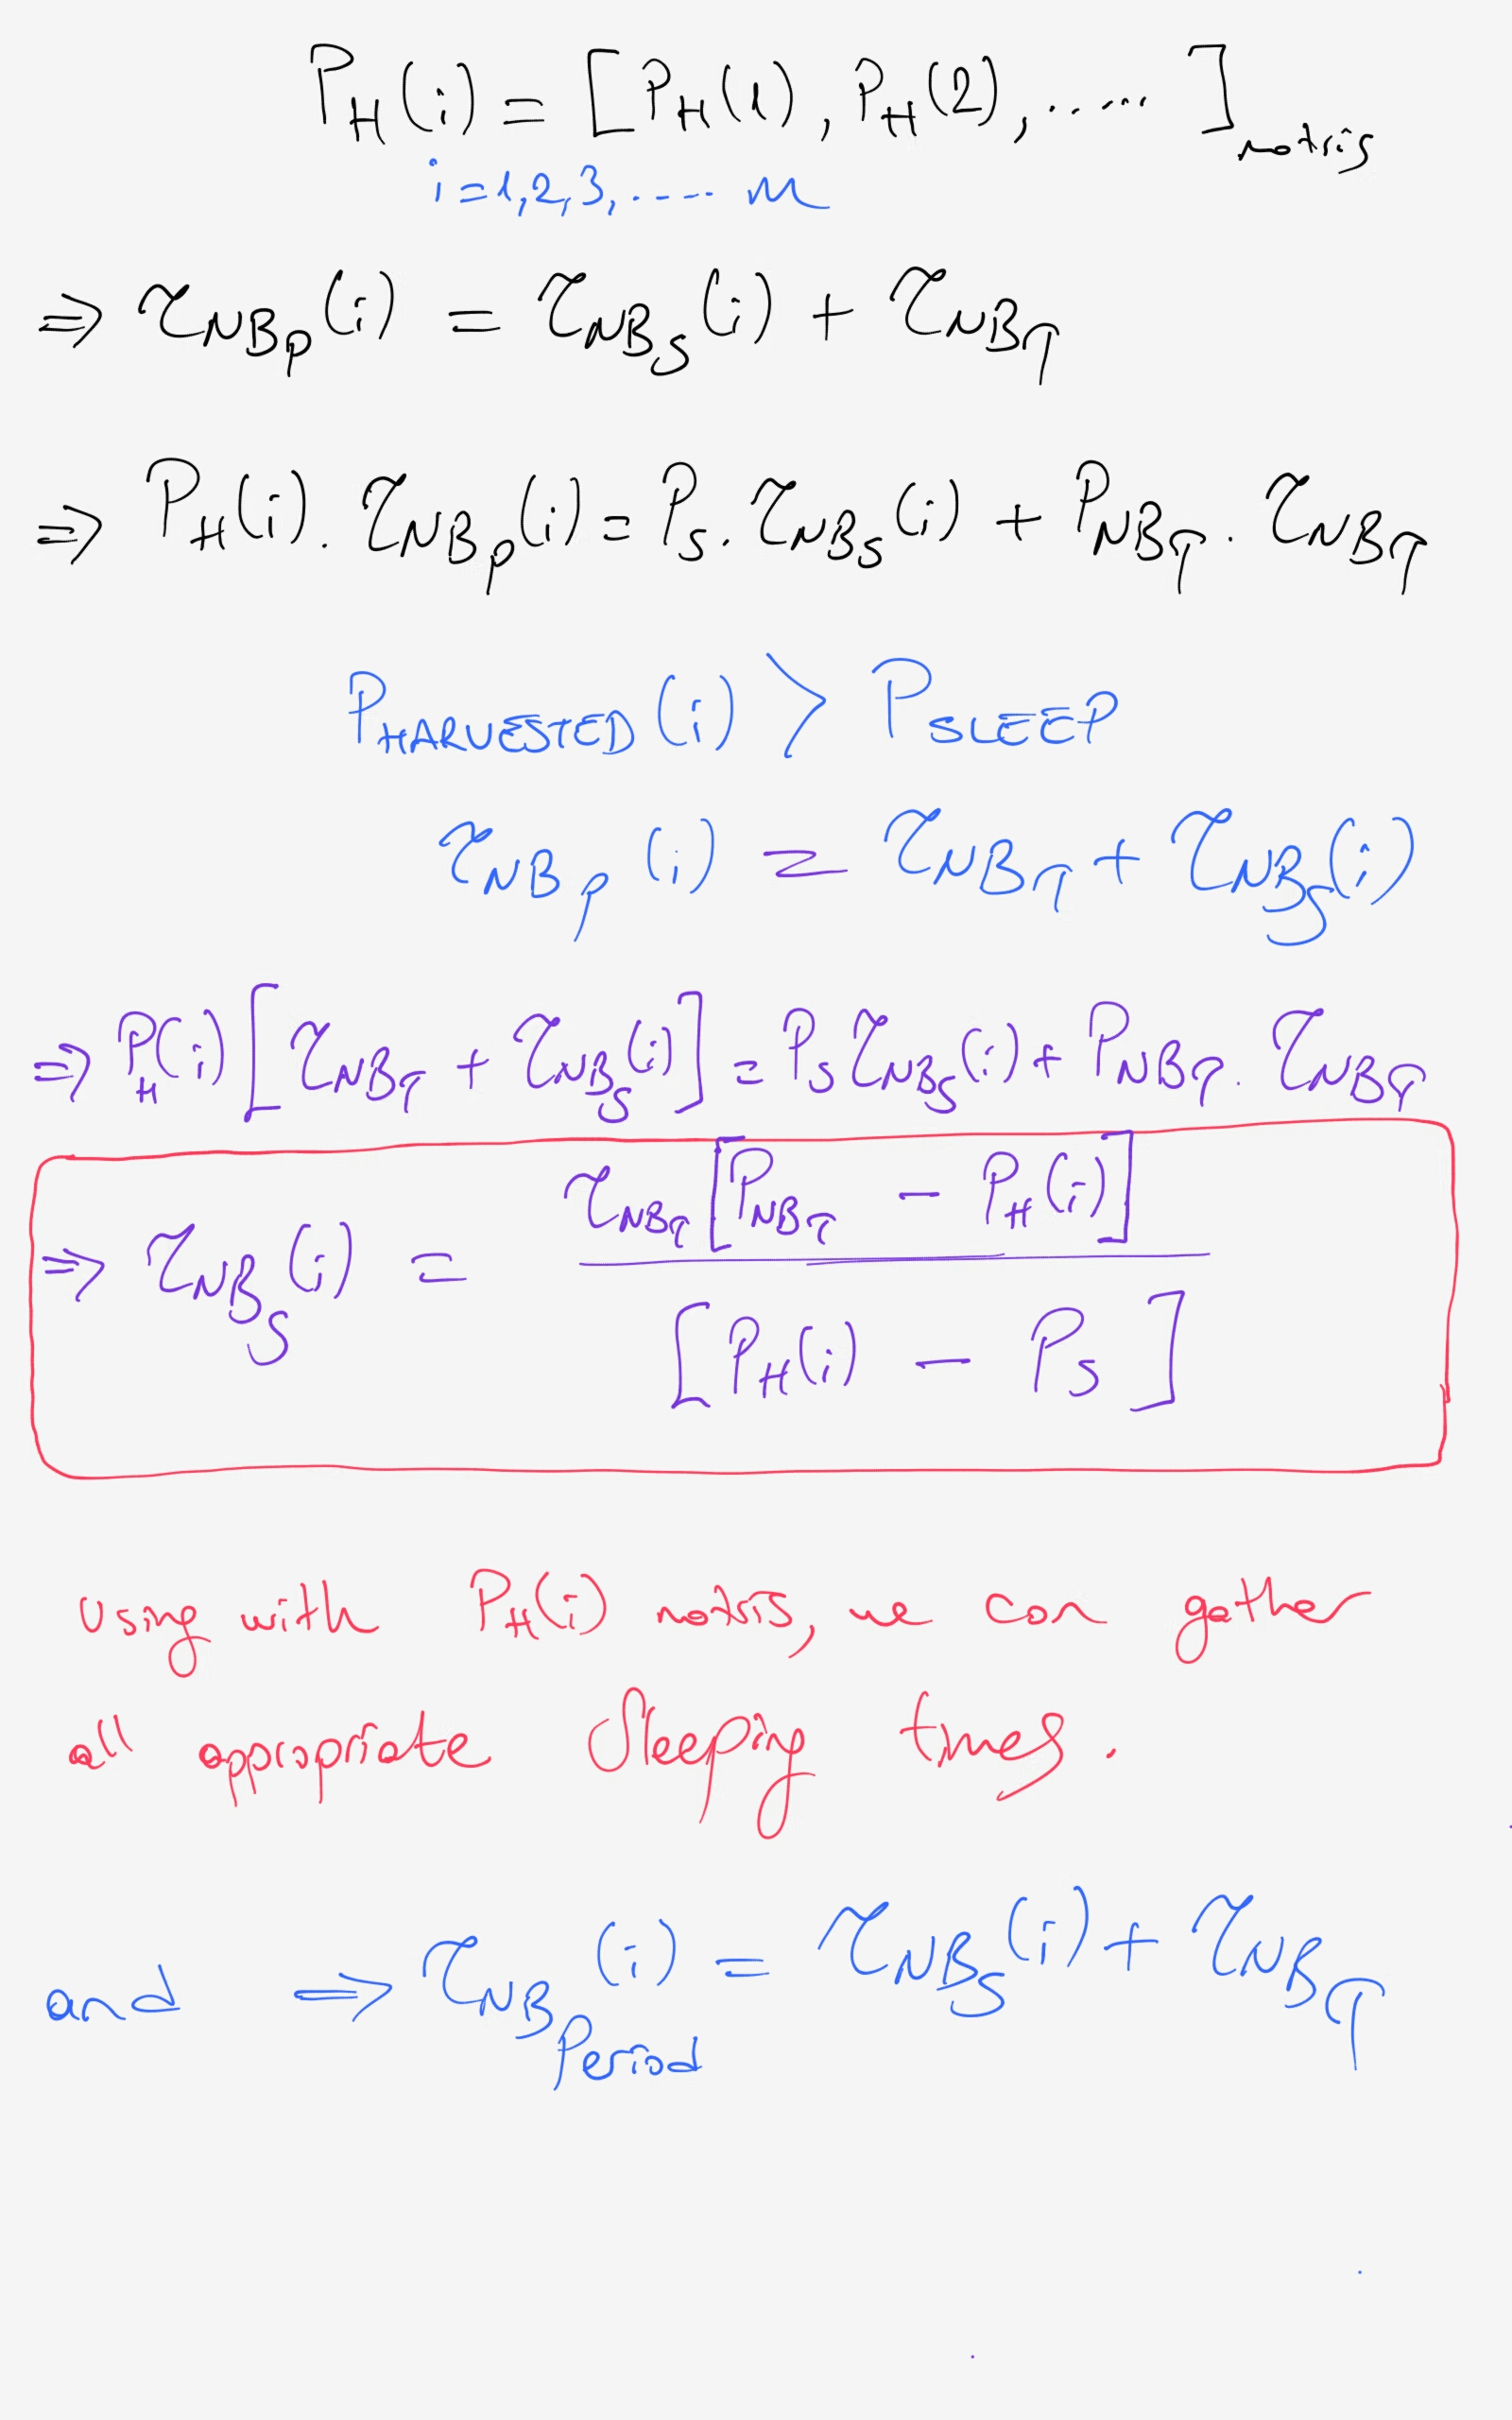 P_H(i) = [P_H(1), P_H(2), ..... ]_matris
i=1,2,3,..... m
⇒ τ_NB_P(i) = τ_NB_S(i) + τ_NB_T
⇒ P_H(i) . τ_NB_P(i) = P_S . τ_NB_S(i) + P_NB_T . τ_NB_T
P_HARVESTED(i) > P_SLEEP
τ_NB_P(i) = τ_NB_T + τ_NB_S(i)
⇒ P_H(i) [τ_NB_T + τ_NB_S(i)] = P_S τ_NB_S(i) + P_NB_T . τ_NB_T
⇒ τ_NB_S(i) = τ_NB_T [P_NB_T - P_H(i)] / [P_H(i) - P_S]
Using with P_H(i) matris, we can gather
all appropriate sleeping times.
and ⇒ τ_NB_Period(i) = τ_NB_S(i) + τ_NB_T